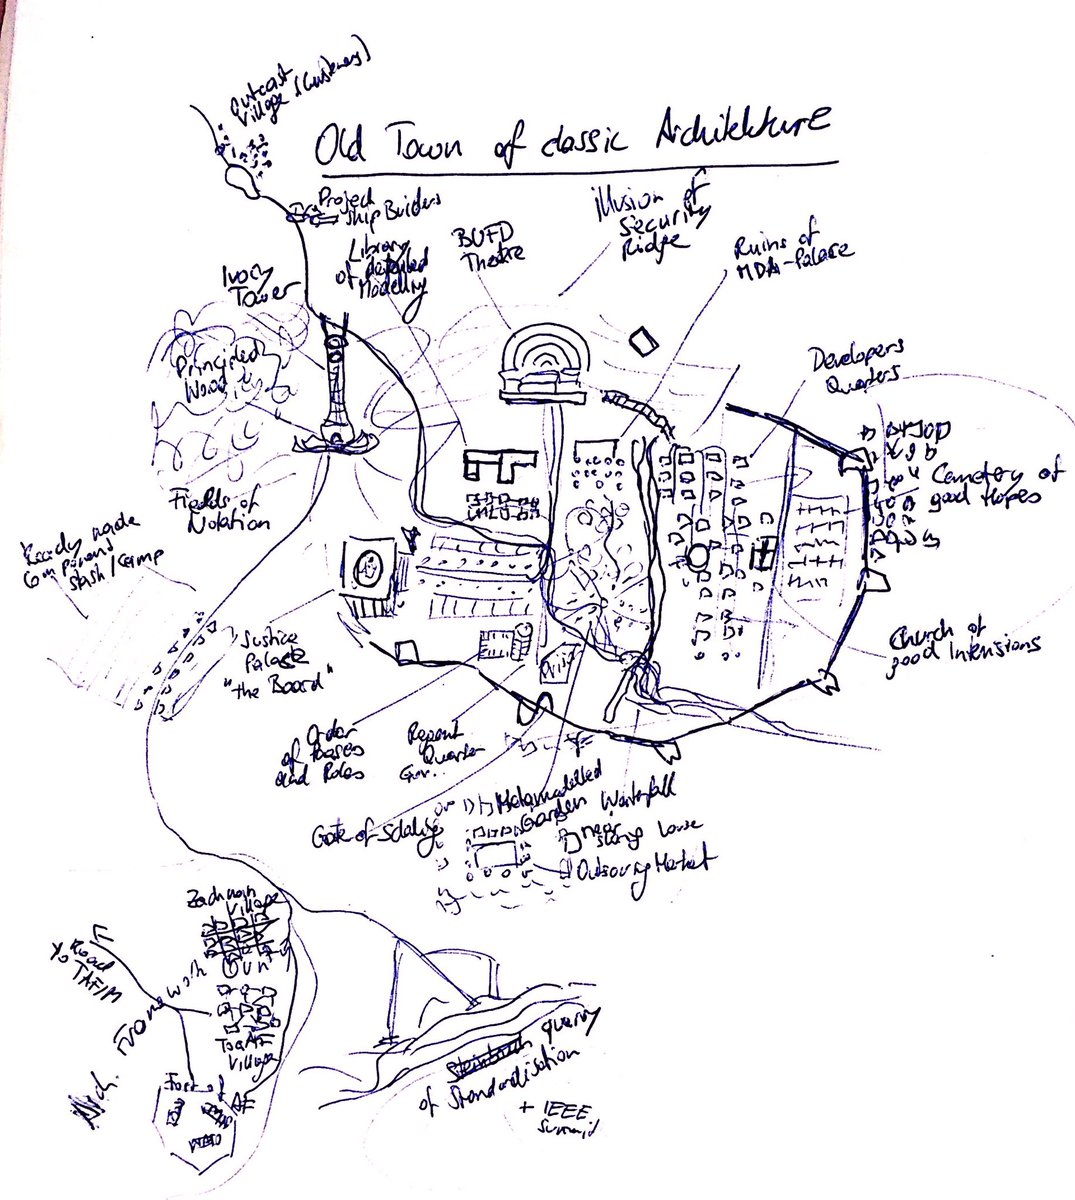 Outcast
Village (Customers)
Old Town of classic Architekture
Project
Ship Buiders
Library
of detailed
Modelling
BUFD
Theatre
illusion of
Security
Ridge
Ruins of
MDA-Palace
Ivory
Tower
Principled
Wood
Developers
Quarters
Cemetery of
good Hopes
Fields of
Notation
Ready made
Component
Stash/Camp
Justice
Palace
"the Board"
Church of
good Intensions
Order
of Boxes
and Roles
Repent
Quarter
Gov...
Gate of
Metamodelled
Garden
Waterfall
near
house
Outsouring Market
Zachman
Village
Road
to TAFIM
Arch. Framework
ToGAF
Village
of AF
query
of Standardisation
+ IEEE
Summit